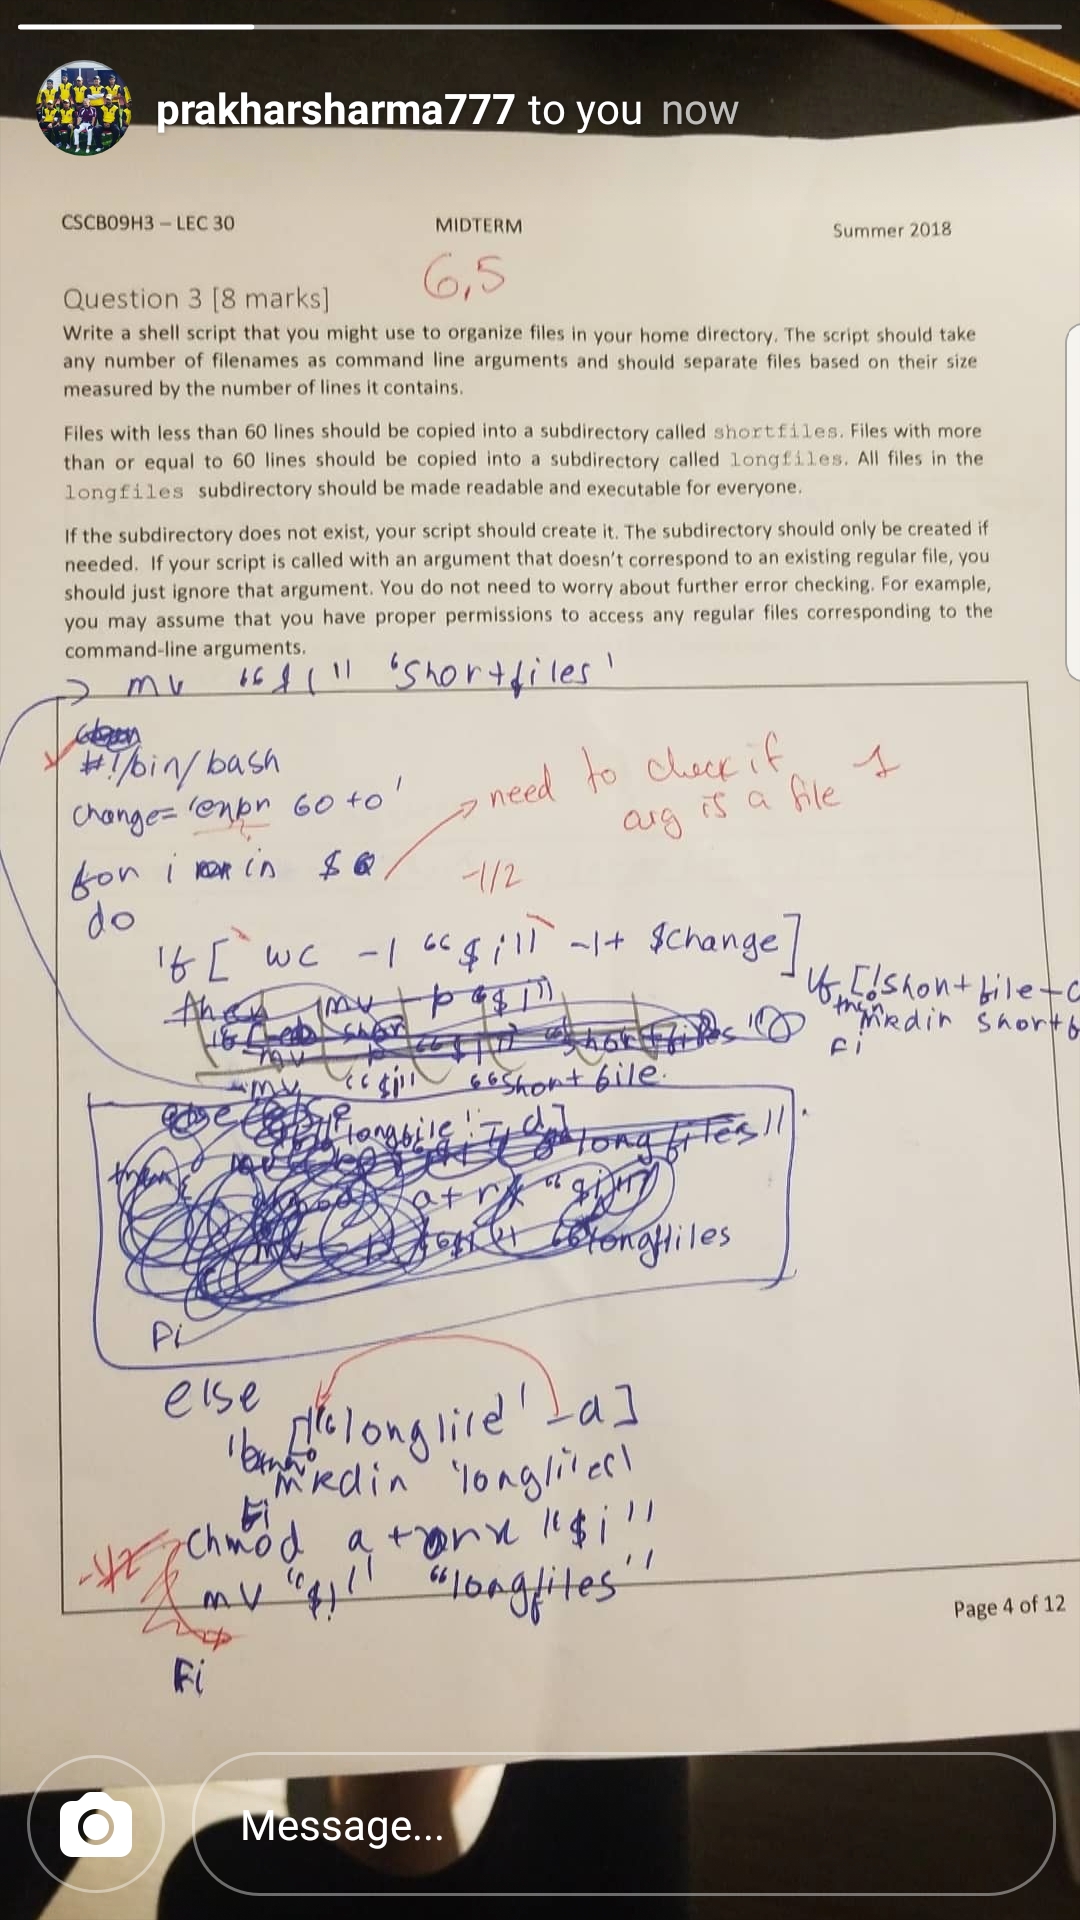 prakharsharma777 to you now
CSCB09H3 – LEC 30 MIDTERM Summer 2018
6,5
Question 3 [8 marks]
Write a shell script that you might use to organize files in your home directory. The script should take
any number of filenames as command line arguments and should separate files based on their size
measured by the number of lines it contains.
Files with less than 60 lines should be copied into a subdirectory called shortfiles. Files with more
than or equal to 60 lines should be copied into a subdirectory called longfiles. All files in the
longfiles subdirectory should be made readable and executable for everyone.
If the subdirectory does not exist, your script should create it. The subdirectory should only be created if
needed. If your script is called with an argument that doesn't correspond to an existing regular file, you
should just ignore that argument. You do not need to worry about further error checking. For example,
you may assume that you have proper permissions to access any regular files corresponding to the
command-line arguments.
mv "$i" 'Shortfiles'
#!/bin/bash
change= 'expr 60 + 0'
need to check if
arg is a file 1
for i in $@
-1/2
do
if [ ` wc -l "$i" ` -lt $change]
if [! Short file -d
then
mkdir short
fi
mv "$i" "Short file
longfile ! - d]
longfiles"
a+rx "$i"
longfiles
Fi
else
-d]
mkdir 'longfiles'
Fi
chmod a +rx "$i"
-1/2
mv "$i" "longfiles"
Page 4 of 12
Fi
Message...